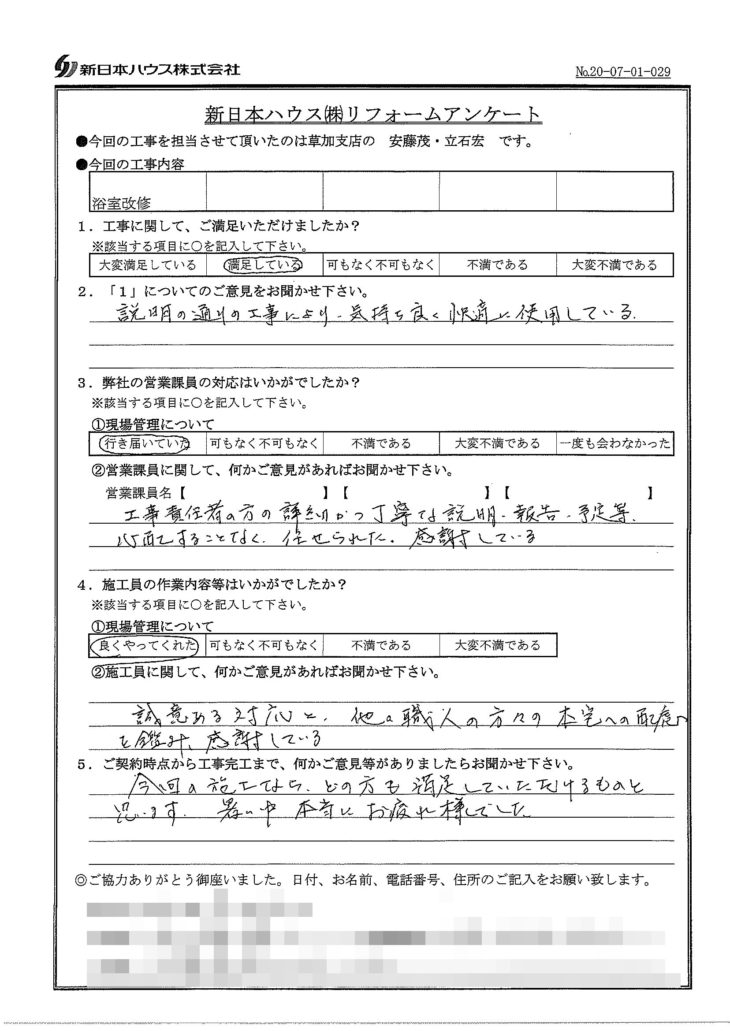 新日本ハウス株式会社
№20-07-01-029
新日本ハウス㈱リフォームアンケート
●今回の工事を担当させて頂いたのは草加支店の　安藤茂・立石宏　です。
●今回の工事内容
浴室改修
１．工事に関して、ご満足いただけましたか？
※該当する項目に○を記入して下さい。
大変満足している　満足している　可もなく不可もなく　不満である　大変不満である
２．「１」についてのご意見をお聞かせ下さい。
説明の通りの工事により、気持ち良く快適に使用している。
３．弊社の営業課員の対応はいかがでしたか？
※該当する項目に○を記入して下さい。
①現場管理について
行き届いていた　可もなく不可もなく　不満である　大変不満である　一度も会わなかった
②営業課員に関して、何かご意見があればお聞かせ下さい。
営業課員名【　　　　】【　　　　】【　　　　】
工事責任者の方の詳細かつ丁寧な説明、報告、予定等、
心配することなく、任せられた。感謝している
４．施工員の作業内容等はいかがでしたか？
※該当する項目に○を記入して下さい。
①現場管理について
良くやってくれた　可もなく不可もなく　不満である　大変不満である
②施工員に関して、何かご意見があればお聞かせ下さい。
誠意ある対応と、他の職人の方々の本宅への配慮
を鑑み、感謝している
５．ご契約時点から工事完工まで、何かご意見等がありましたらお聞かせ下さい。
今回の施工なら、どの方も満足していただけるものと
思います。暑い中本当にお疲れ様でした
◎ご協力ありがとう御座いました。日付、お名前、電話番号、住所のご記入をお願い致します。